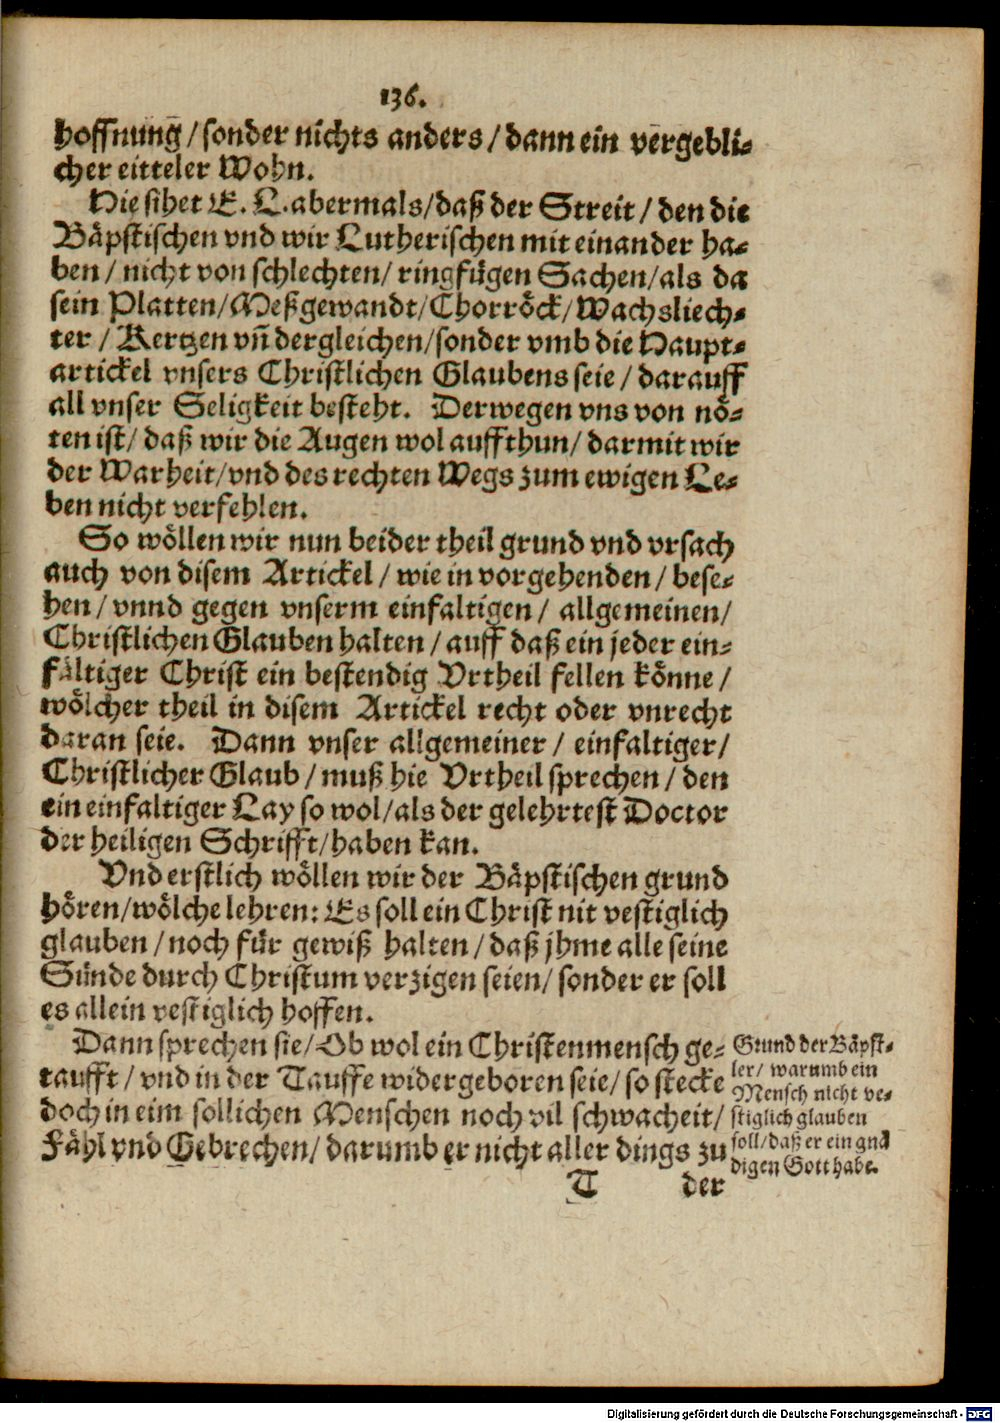 136.
hoffnung/sonder nichts anders/dann ein vergebli-
cher eitteler Wohn.
Hie sihet E. L. abermals/daß der Streit/den die
Bäpstischen vnd wir Lutherischen mit einander ha-
ben/nicht von schlechten/ringfügen Sachen/als da
sein Platten/Meßgewandt/Chorröck/Wachsliech-
ter/Kertzen vñ dergleichen/sonder vmb die Haupt-
artickel vnsers Christlichen Glaubens seie/darauff
all vnser Seligkeit besteht. Derwegen vns von nö-
ten ist/daß wir die Augen wol auffthun/darmit wir
der Warheit/vnd des rechten Wegs zum ewigen Le-
ben nicht verfehlen.
So wöllen wir nun beider theil grund vnd vrsach
auch von disem Artickel/wie in vorgehenden/bese-
hen/vnnd gegen vnserm einfaltigen/allgemeinen/
Christlichen Glauben halten/auff daß ein jeder ein-
fältiger Christ ein bestendig Vrtheil fellen könne/
wölcher theil in disem Artickel recht oder vnrecht
daran seie. Dann vnser allgemeiner/einfaltiger/
Christlicher Glaub/muß hie Vrtheil sprechen/den
ein einfaltiger Lay so wol/als der gelehrtest Doctor
der heiligen Schrifft/haben kan.
Vnd erstlich wöllen wir der Bäpstischen grund
hören/wölche lehren: Es soll ein Christ nit vestiglich
glauben/noch für gewiß halten/daß jhme alle seine
Sünde durch Christum verzigen seien/sonder er soll
es allein vestiglich hoffen.
Dann sprechen sie/Ob wol ein Christenmensch ge-
taufft/vnd in der Tauffe widergeboren seie/so stecke
doch in eim sollichen Menschen noch vil schwacheit/
Fähl vnd Gebrechen/darumb er nicht aller dings zu
Grund der Bäpst-
ler/warumb ein
Mensch nicht ve-
stiglich glauben
soll/daß er ein gnä
digen Gott habe.
T der
Digitalisierung gefördert durch die Deutsche Forschungsgemeinschaft - DFG